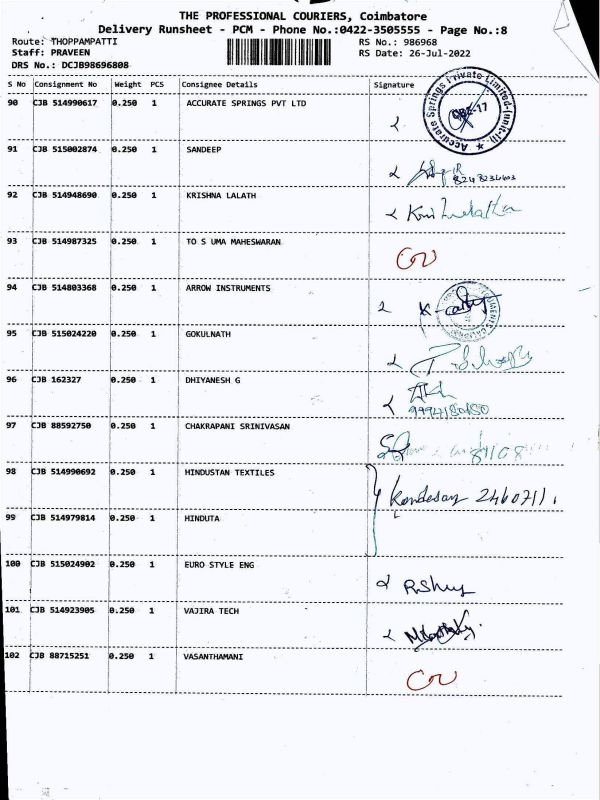 THE PROFESSIONAL COURIERS, Coimbatore
Delivery Runsheet - PCM - Phone No.:0422-3505555 - Page No.:8
Route: THOPPAMPATTI RS No.: 986968
Staff: PRAVEEN RS Date: 26-Jul-2022
DRS No.: DCJB98696808
S No Consignment No Weight PCS Consignee Details Signature
90 CJB 514990617 0.250 1 ACCURATE SPRINGS PVT LTD
Accurate Springs Private Limited-(unit-II)
91 CJB 515002874 0.250 1 SANDEEP
8248234603
92 CJB 514948690 0.250 1 KRISHNA LALATH
93 CJB 514987325 0.250 1 TO S UMA MAHESWARAN
94 CJB 514803368 0.250 1 ARROW INSTRUMENTS
95 CJB 515024220 0.250 1 GOKULNATH
96 CJB 162327 0.250 1 DHIYANESH G
97 CJB 88592750 0.250 1 CHAKRAPANI SRINIVASAN
98 CJB 514990692 0.250 1 HINDUSTAN TEXTILES
99 CJB 514979814 0.250 1 HINDUTA
100 CJB 515024902 0.250 1 EURO STYLE ENG
101 CJB 514923905 0.250 1 VAJIRA TECH
102 CJB 88715251 0.250 1 VASANTHAMANI